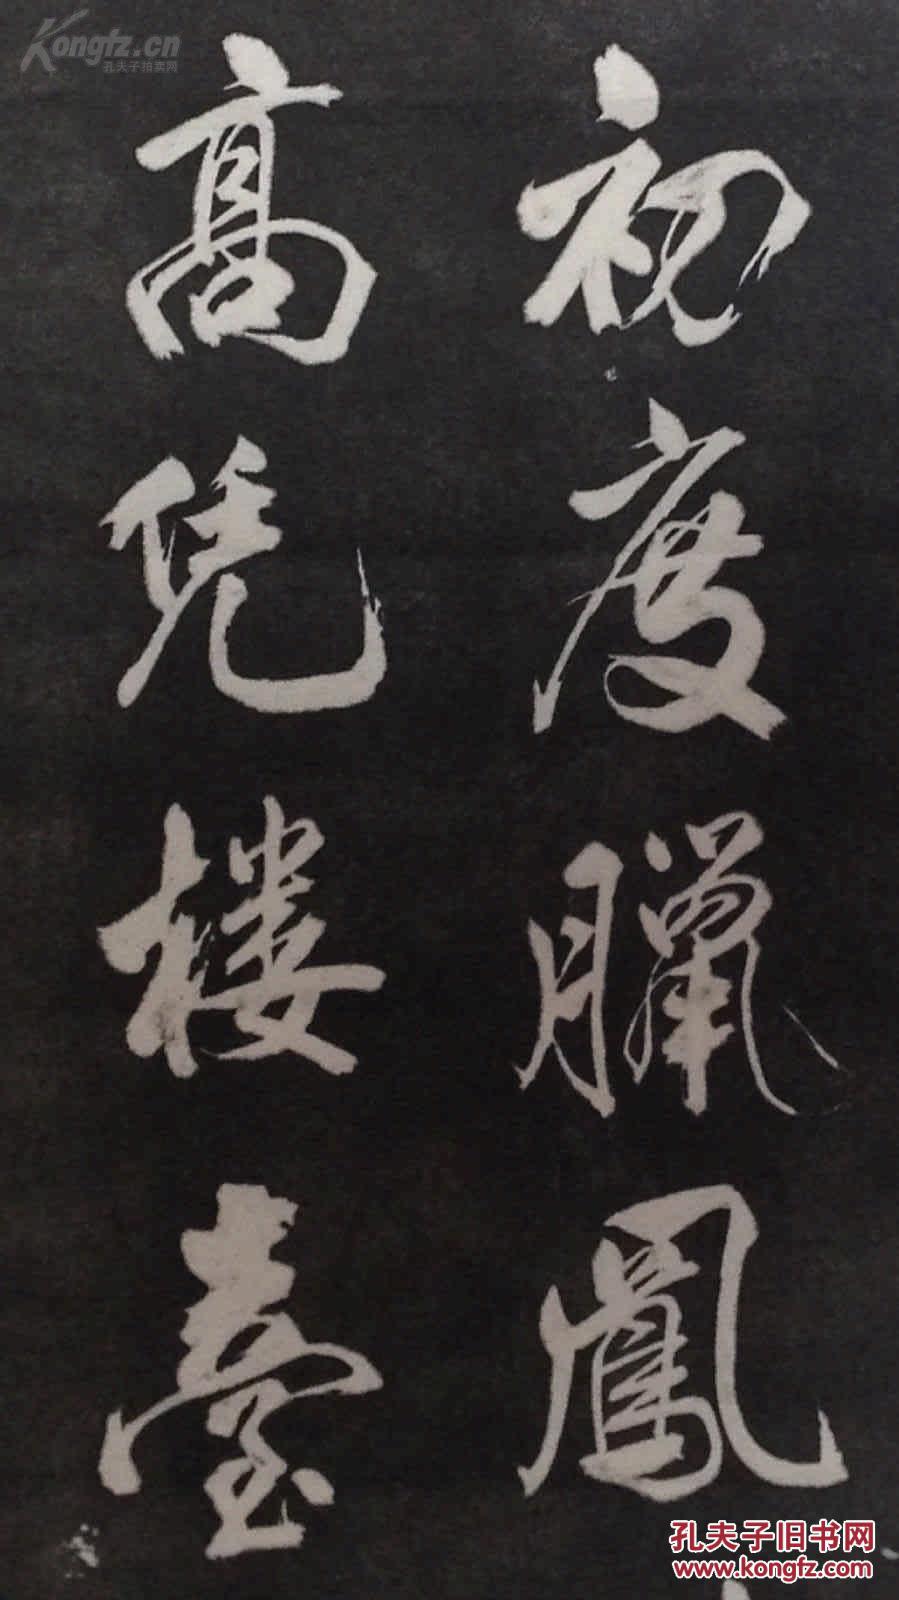 初度臘鳳
高凭楼臺
Kongfz.cn
孔夫子拍卖网
孔夫子旧书网
www.kongfz.com